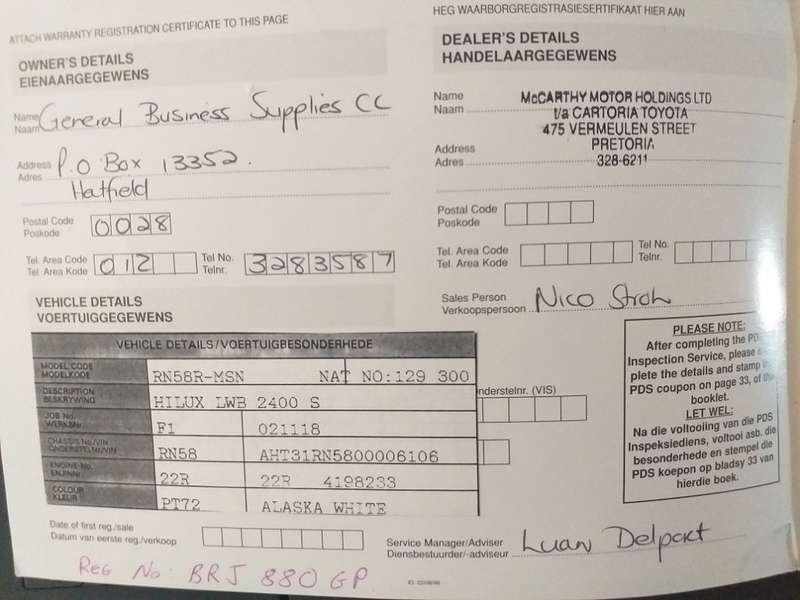 ATTACH WARRANTY REGISTRATION CERTIFICATE TO THIS PAGE
OWNER'S DETAILS
EIENAARGEGEWENS
Name General Business Supplies CC
Naam
Address P.O Box 13352.
Adres Hatfield
Postal Code 0028
Poskode
Tel. Area Code 012 Tel No. 3283587
Tel. Area Kode Telnr.
VEHICLE DETAILS
VOERTUIGGEGEWENS
VEHICLE DETAILS/VOERTUIGBESONDERHEDE
MODEL CODE RN58R-MSN NAT NO:129 300
MODELKODE
DESCRIPTION HILUX LWB 2400 S
BESKRYWING
JOB No. F1 021118
WERKSNr.
CHASSIS No/VIN RN58 AHT31RN5800006106
ONDERSTELNr/VIN
ENGINE No. 22R 22R 4198233
ENJINNr.
COLOUR PT72 ALASKA WHITE
KLEUR
Date of first reg./sale
Datum van eerste reg./verkoop
Reg No: BRJ 880 GP
HEG WAARBORGREGISTRASIESERTIFIKAAT HIER AAN
DEALER'S DETAILS
HANDELAARGEGEWENS
Name McCARTHY MOTOR HOLDINGS LTD
Naam t/a CARTORIA TOYOTA
475 VERMEULEN STREET
Address PRETORIA
Adres 328-6211
Postal Code
Poskode
Tel. Area Code Tel No.
Tel. Area Kode Telnr.
Sales Person Nico Stroh
Verkoopspersoon
nderstelnr. (VIS)
PLEASE NOTE:
After completing the PD
Inspection Service, please
plete the details and stamp
PDS coupon on page 33, of
booklet.
LET WEL:
Na die voltooiing van die PDS
Inspeksiediens, voltooi asb. die
besonderhede en stempel die
PDS koepon op bladsy 33 van
hierdie boek.
Service Manager/Adviser Luan Delport
Diensbestuurder/-adviseur